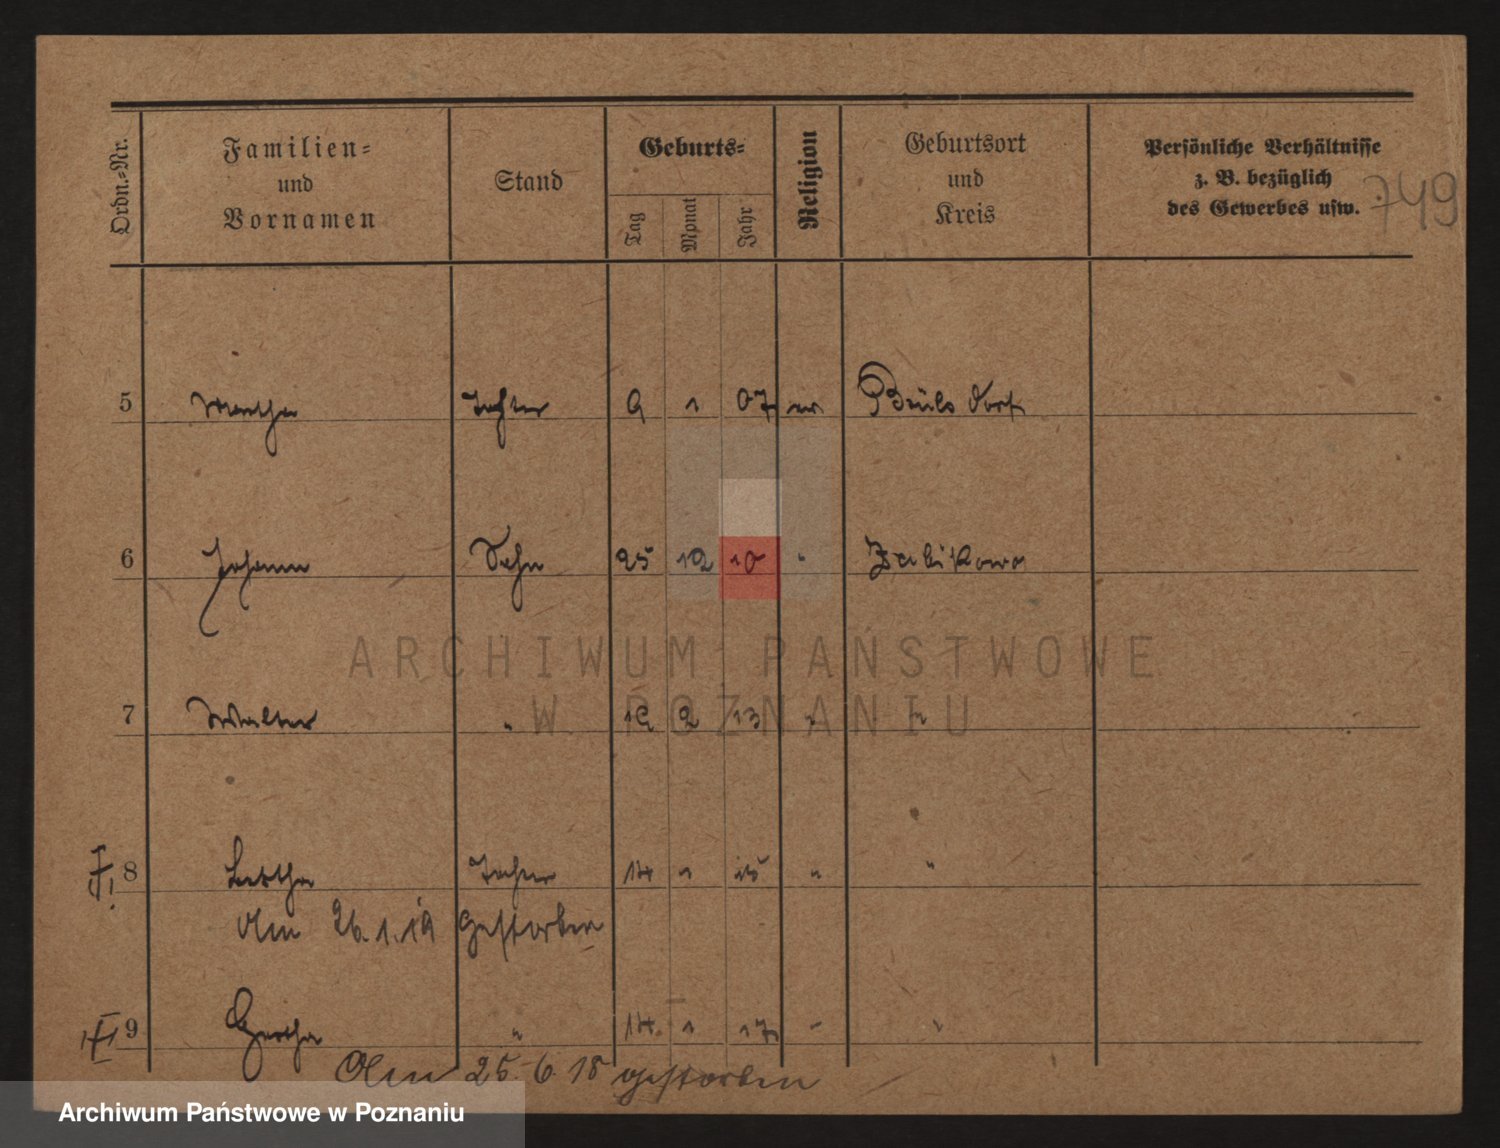 Ordn.-Nr.
Familien-
und
Vornamen
Stand
Geburts-
Tag
Monat
Jahr
Religion
Geburtsort
und
Kreis
Persönliche Verhältnisse
z. B. bezüglich
des Gewerbes usw.
749
5 Martha Tochter 9 1 07 ev Brüls dorf
6 Johann Sohn 25 12 10 " Zabikowo
ARCHIWUM PAŃSTWOWE
W POZNANIU
7 Walter " 12 2 13 " "
8 Tochter 14 1 15 " "
Am 26.1.19 gestorben
9 Hertha " 14. 1 17 " "
Am 25. 6 18 gestorben
Archiwum Państwowe w Poznaniu